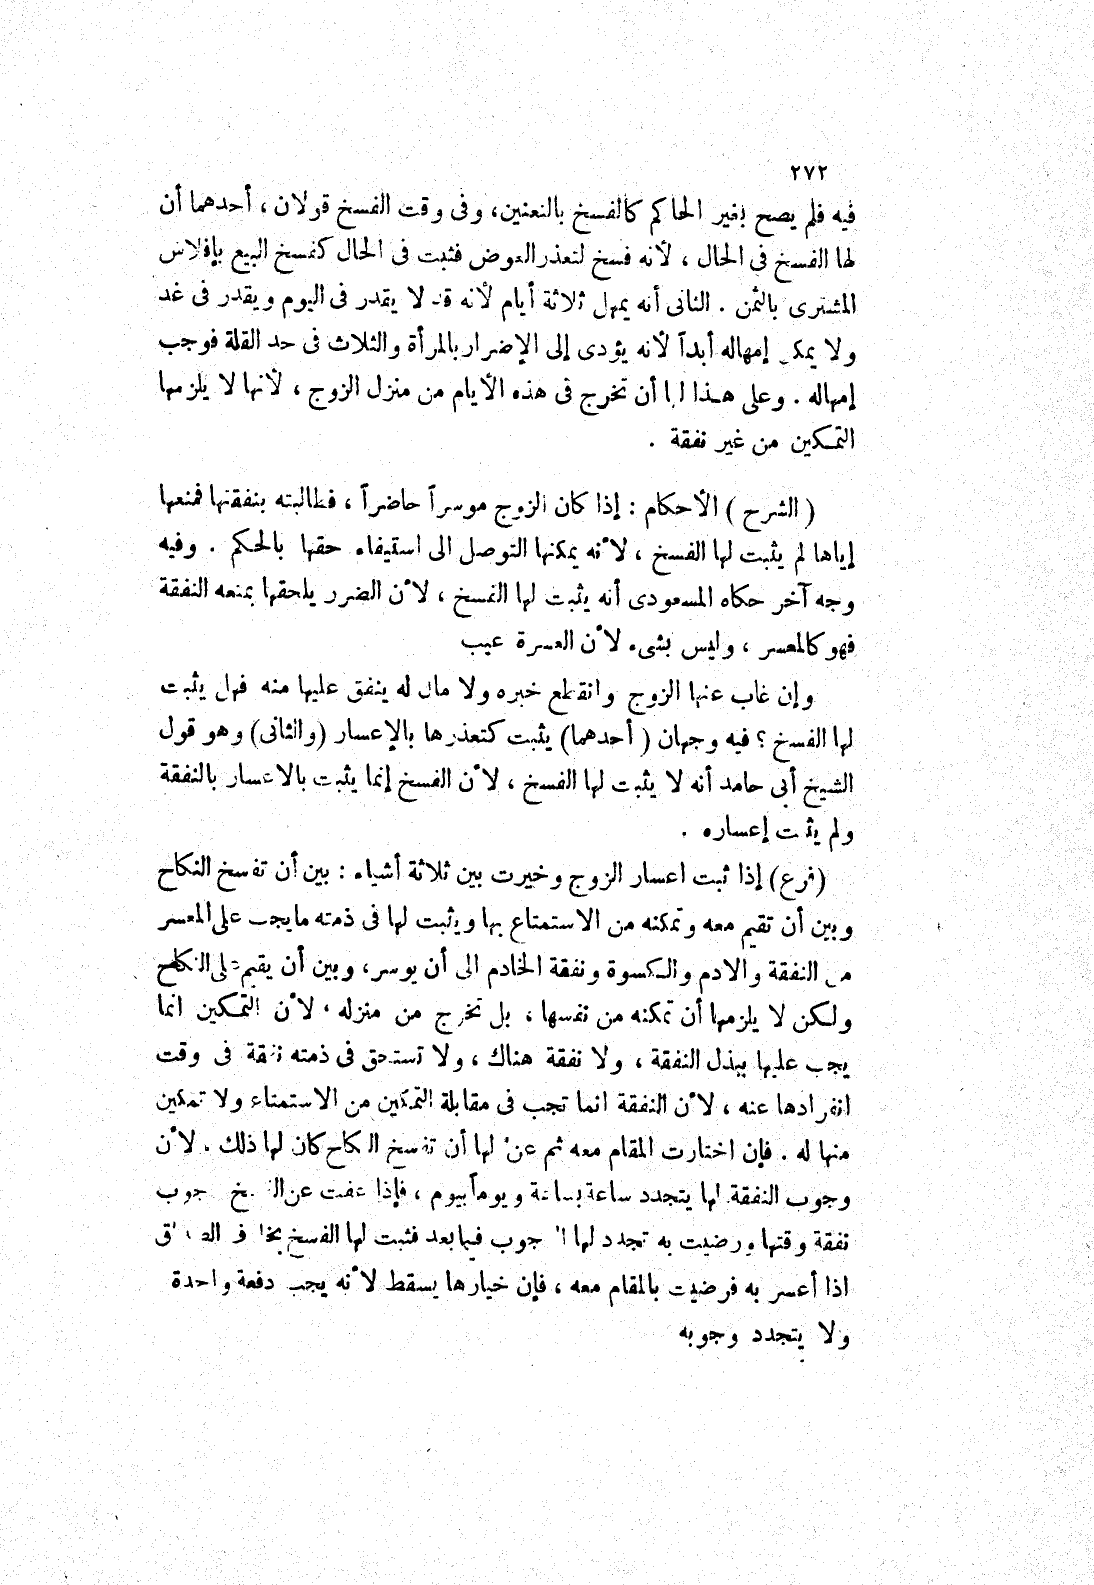 ٢٧٢
فيه فلم يصح بغير الحاكم كالفسخ بالتعنين، وفى وقت الفسخ قولان ، أحدهما أن
لها الفسخ فى الحال ، لأنه فسخ لتعذر العوض فثبت فى الحال كفسخ البيع بإفلاس
المشترى بالثمن . الثانى أنه يمهل ثلاثة أيام لأنه قد لا يقدر فى اليوم ويقدر فى غد
ولا يمكن إمهاله أبداً لأنه يؤدى إلى الإضرار بالمرأة والثلاث فى حد القلة فوجب
إمهاله . وعلى هـذا لها أن تخرج فى هذه الأيام من منزل الزوج ، لأنها لا يلزمها
التمـكين من غير نفقة .
( الشرح ) الأحكام : إذا كان الزوج موسراً حاضراً ، فطالبته بنفقتها فمنعها
إياها لم يثبت لها الفسخ ، لأنه يمكنها التوصل الى استيفاء حقها بالحكم . وفيه
وجه آخر حكاه المسعودى أنه يثبت لها الفسخ ، لأن الضرر يلحقها بمنعه النفقة
فهو كالمعسر ، وليس بشىء لأن العسرة عيب
وإن غاب عنها الزوج وانقطع خبره ولا مال له ينفق عليها منه فهل يثبت
لها الفسخ ؟ فيه وجهان ( أحدهما) يثبت كتعذرها بالإعسار (والثانى) وهو قول
الشيخ أبى حامد أنه لا يثبت لها الفسخ ، لأن الفسخ إنما يثبت بالاعسار بالنفقة
ولم يثبت إعساره .
(فرع) إذا ثبت اعسار الزوج وخيرت بين ثلاثة أشياء : بين أن تفسخ النكاح
وبين أن تقيم معه وتمكنه من الاستمتاع بها ويثبت لها فى ذمته ما يجب على المعسر
من النفقة والادم والـكسوة ونفقة الخادم الى أن يوسر، وبين أن يقيم على النكاح
ولـكن لا يلزمها أن تمكنه من نفسها ، بل تخرج من منزله ، لأن التمـكين انما
يجب عليها ببذل النفقة ، ولا نفقة هناك ، ولا تستحق فى ذمته نفقة فى وقت
انفرادها عنه ، لأن النفقة انما تجب فى مقابلة التمكين من الاستمتاع ولا تمكين
منها له . فإن اختارت المقام معه ثم عن لها أن تفسخ النكاح كان لها ذلك ، لأن
وجوب النفقة لها يتجدد ساعة بساعة ويوماً بيوم ، فإذا عفت عن الفسخ وجوب
نفقة وقتها ورضيت به تجدد لها الوجوب فيما بعد فثبت لها الفسخ بخلاف الصداق
اذا أعسر به فرضيت بالمقام معه ، فإن خيارها يسقط لأنه يجب دفعة واحدة
ولا يتجدد وجوبه